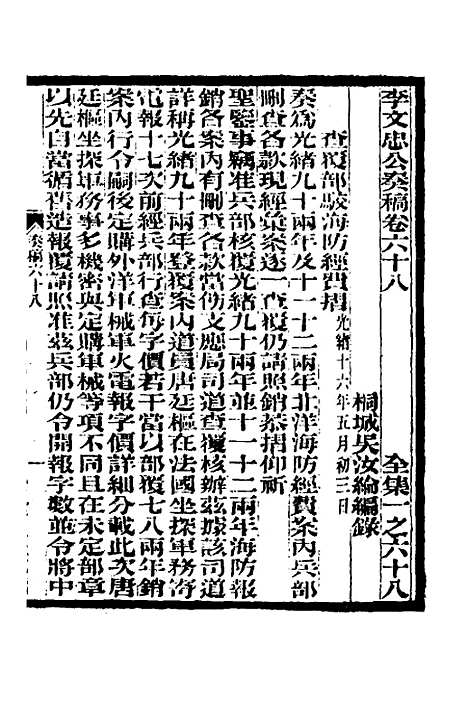 李文忠公奏稿卷六十八　全集一之六十八
桐城吳汝綸編錄
查覆部駁海防經費摺光緒十六年五月初三日
奏爲光緒九十兩年及十一十二兩年北洋海防經費案內兵部
刪查各款現經彙案逐一查覆仍請照銷恭摺仰祈
聖鑒事竊准兵部核覆光緒九十兩年並十一十二兩年海防報
銷各案內有刪查各款當飭支應局司道查覆核辦茲據該司道
詳稱光緒九十兩年登覆案內道員唐廷樞在法國坐探軍務寄
電報十七次前經兵部行查每字價若干當以部覆七八兩年銷
案內行令嗣後定購外洋軍械軍火電報字價詳細分載此次唐
廷樞坐探軍務事多機密與定購軍械等項不同且在未定部章
以先自當循舊造報覆請照准茲兵部仍令開報字數並令將中
奏稿六十八
一